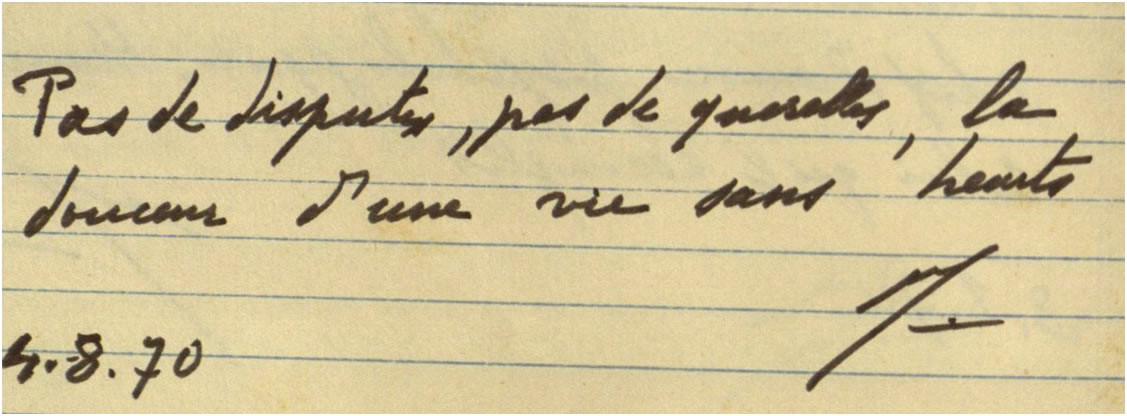 Pas de disputes, pas de querelles, la
douceur d'une vie sans heurts
4.8.70